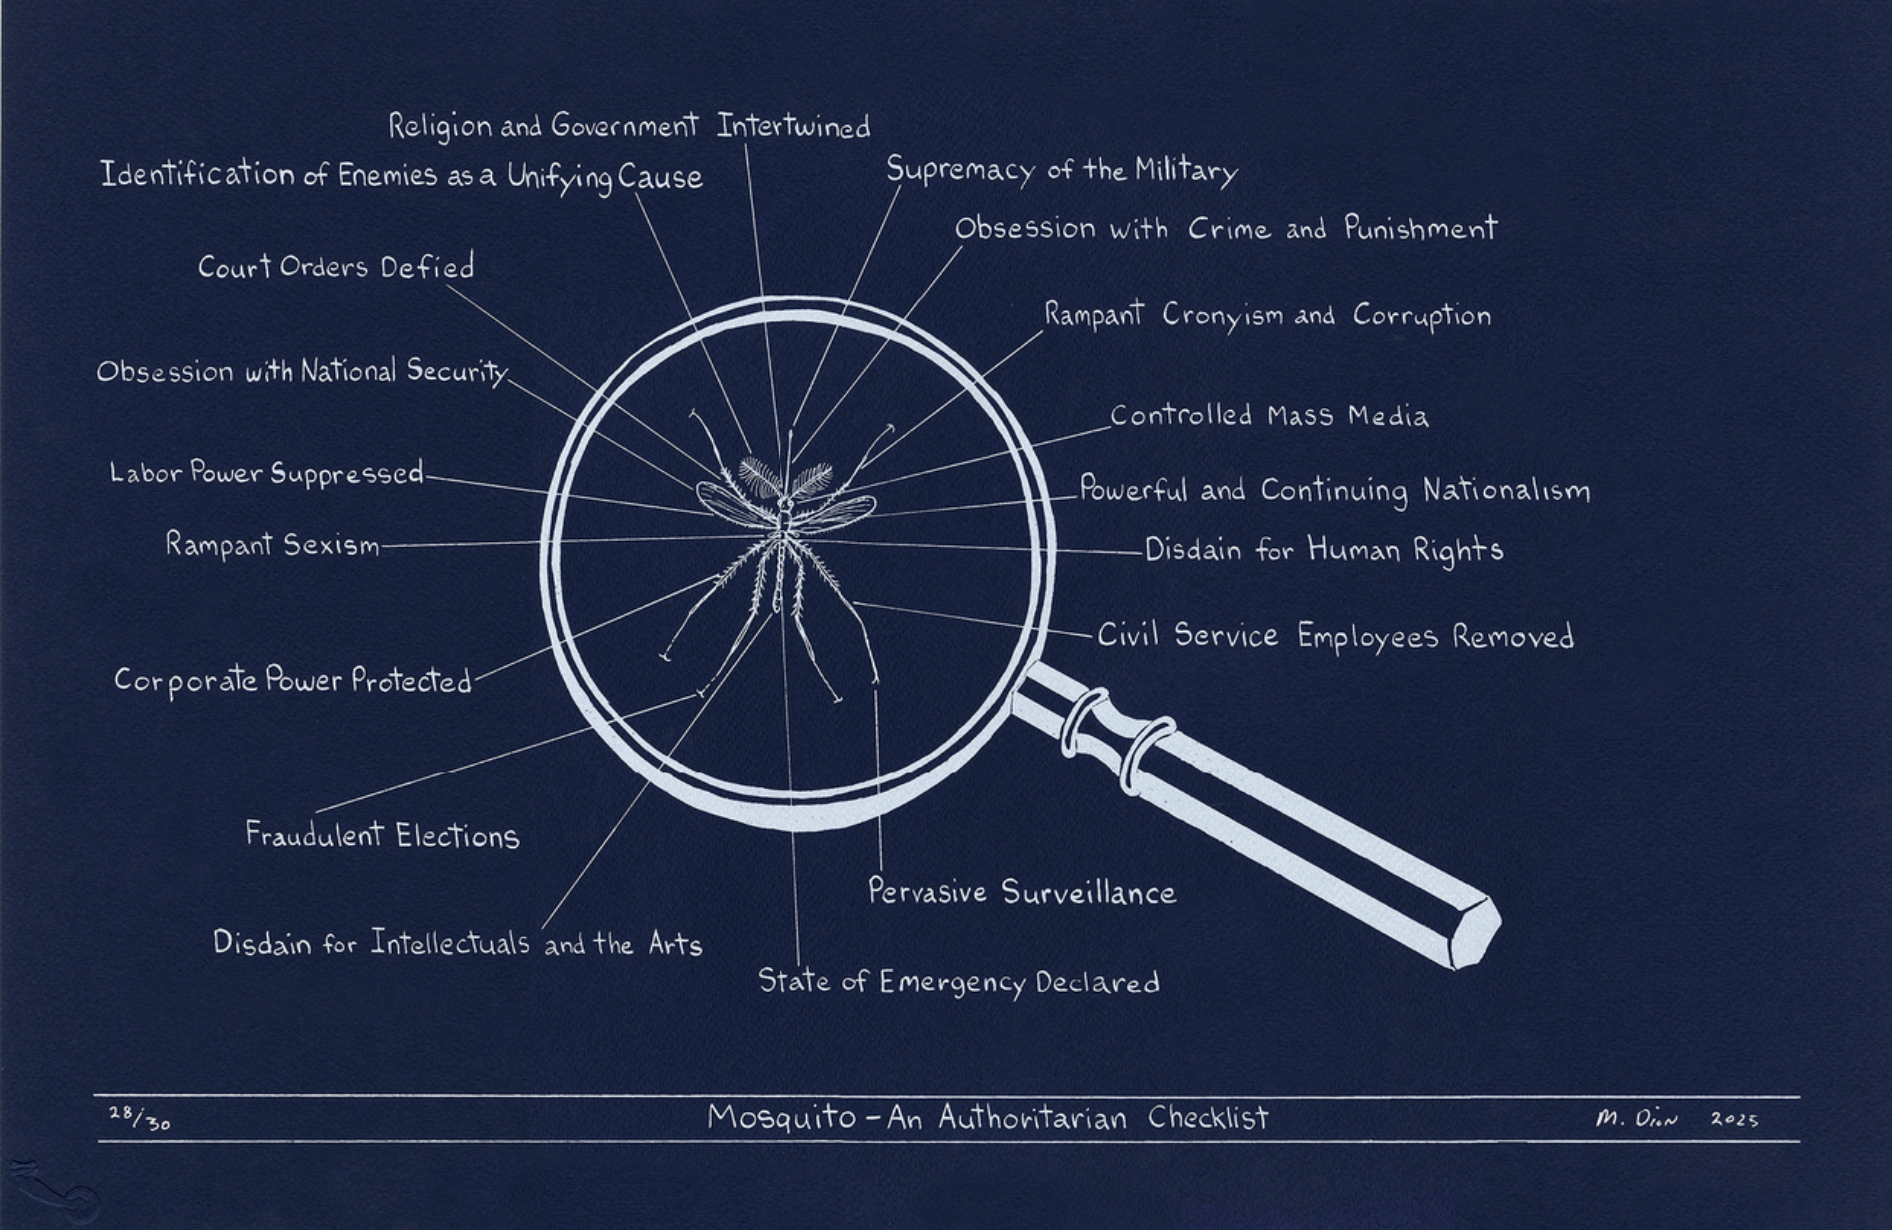 Religion and Government Intertwined
Identification of Enemies as a Unifying Cause
Supremacy of the Military
Obsession with Crime and Punishment
Court Orders Defied
Rampant Cronyism and Corruption
Obsession with National Security
Controlled Mass Media
Labor Power Suppressed
Powerful and Continuing Nationalism
Rampant Sexism
Disdain for Human Rights
Civil Service Employees Removed
Corporate Power Protected
Fraudulent Elections
Pervasive Surveillance
Disdain for Intellectuals and the Arts
State of Emergency Declared
28/30
Mosquito – An Authoritarian Checklist
M. Dion 2025